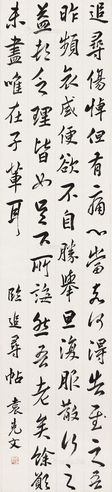 追尋傷悼但有痛心當奈何得告至之吾
昨頻哀感便欲不自勝舉旦復服散行之
益頓乏推理皆如足下所誨然吾老矣餘願
未盡唯在子輩耳
臨追尋帖 袁克文